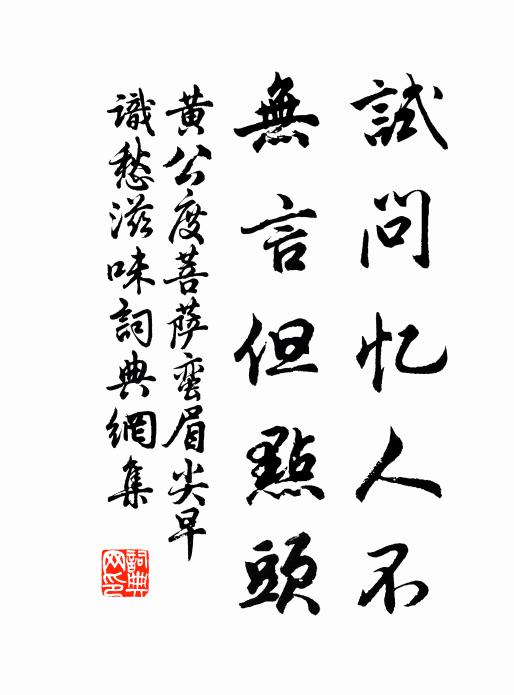 試問忆人不
無言但點頭
黄公度菩薩蠻眉尖早
識愁滋味詞典網集
詞典网印